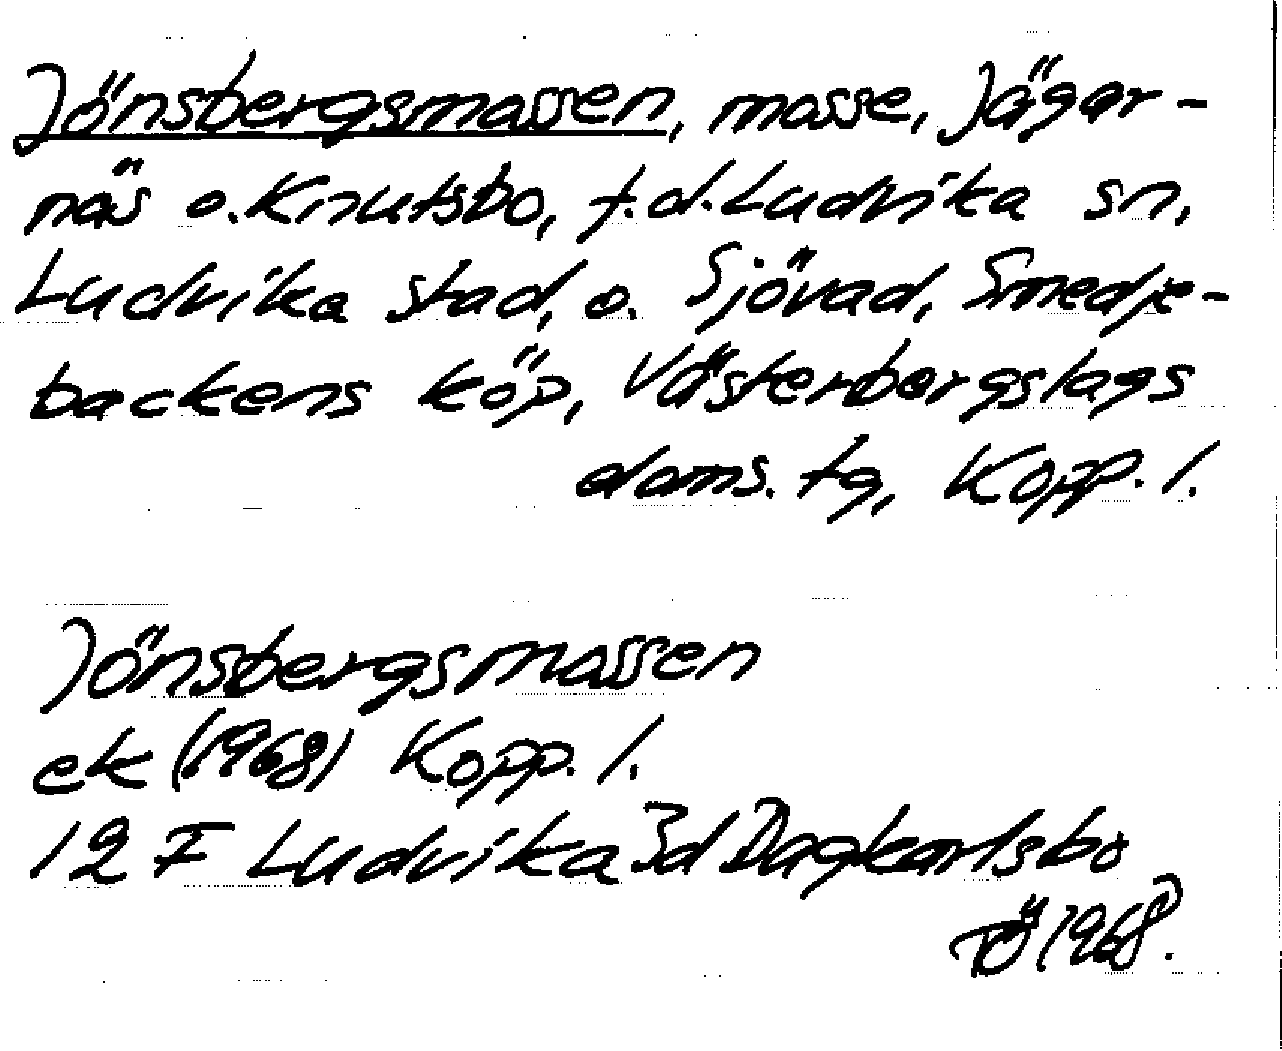 Jönsbergsmossen, mosse, Jägar-
näs o. Knutsbo, f.d. Ludvika sn,
Ludvika stad, o. Sjövad, Smedje-
backens köp, Västerbergslags
doms. tg, Kopp. l.
Jönsbergsmossen
ek (1968) Kopp. l.
12 F Ludvika 3d Dagkarlsbo
TÖ 1968.